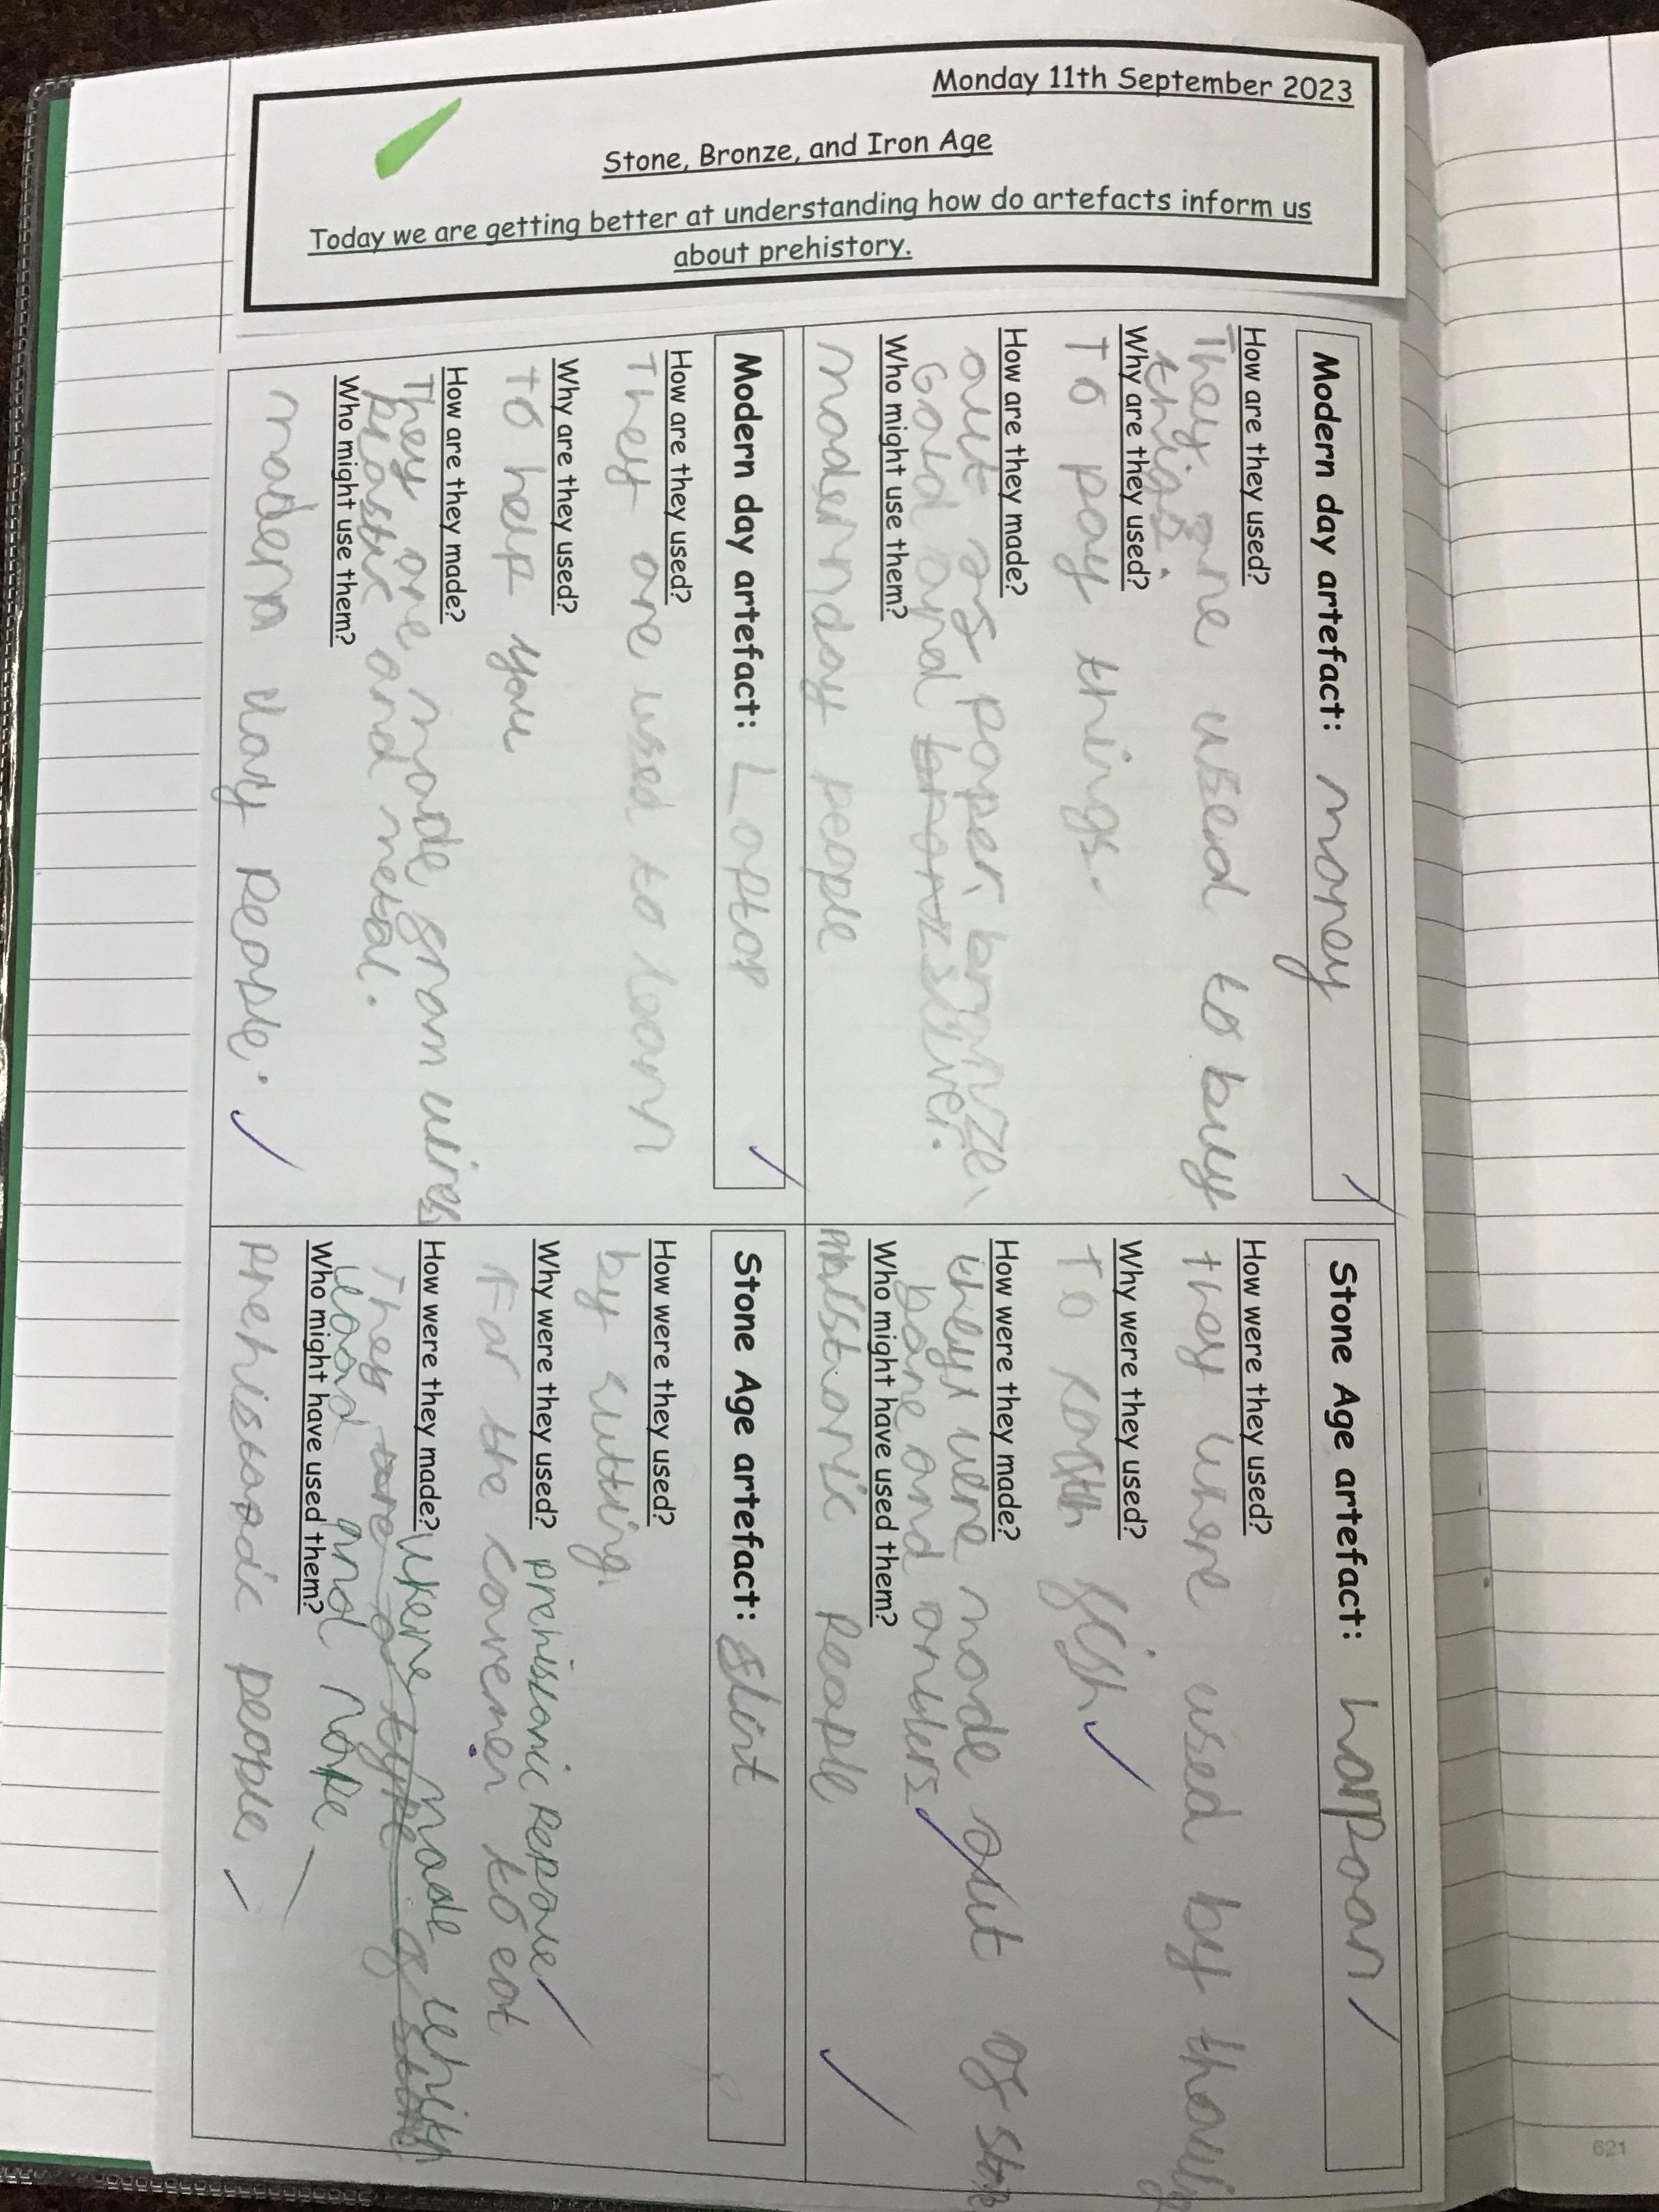 Monday 11th September 2023
Stone, Bronze, and Iron Age
Today we are getting better at understanding how do artefacts inform us
about prehistory.
Modern day artefact: money
How are they used?
They are used to buy
things.
Why are they used?
To pay things.
How are they made?
out of paper, bronze,
Gold and silver.
Who might use them?
modern day people
Stone Age artefact: harpoon
How were they used?
They where used by
Why were they used?
To fish
How were they made?
they were made out of
bone and antlers.
Who might have used them?
people
Modern day artefact: Laptop
How are they used?
They are used to learn
Why are they used?
To help you
How are they made?
They are made from wires
plastic and metal.
Who might use them?
modern day people.
Stone Age artefact: flint
How were they used?
by cutting.
Why were they used?
For the to eat
How were they made? were made
They
and rope
Who might have used them?
people
621